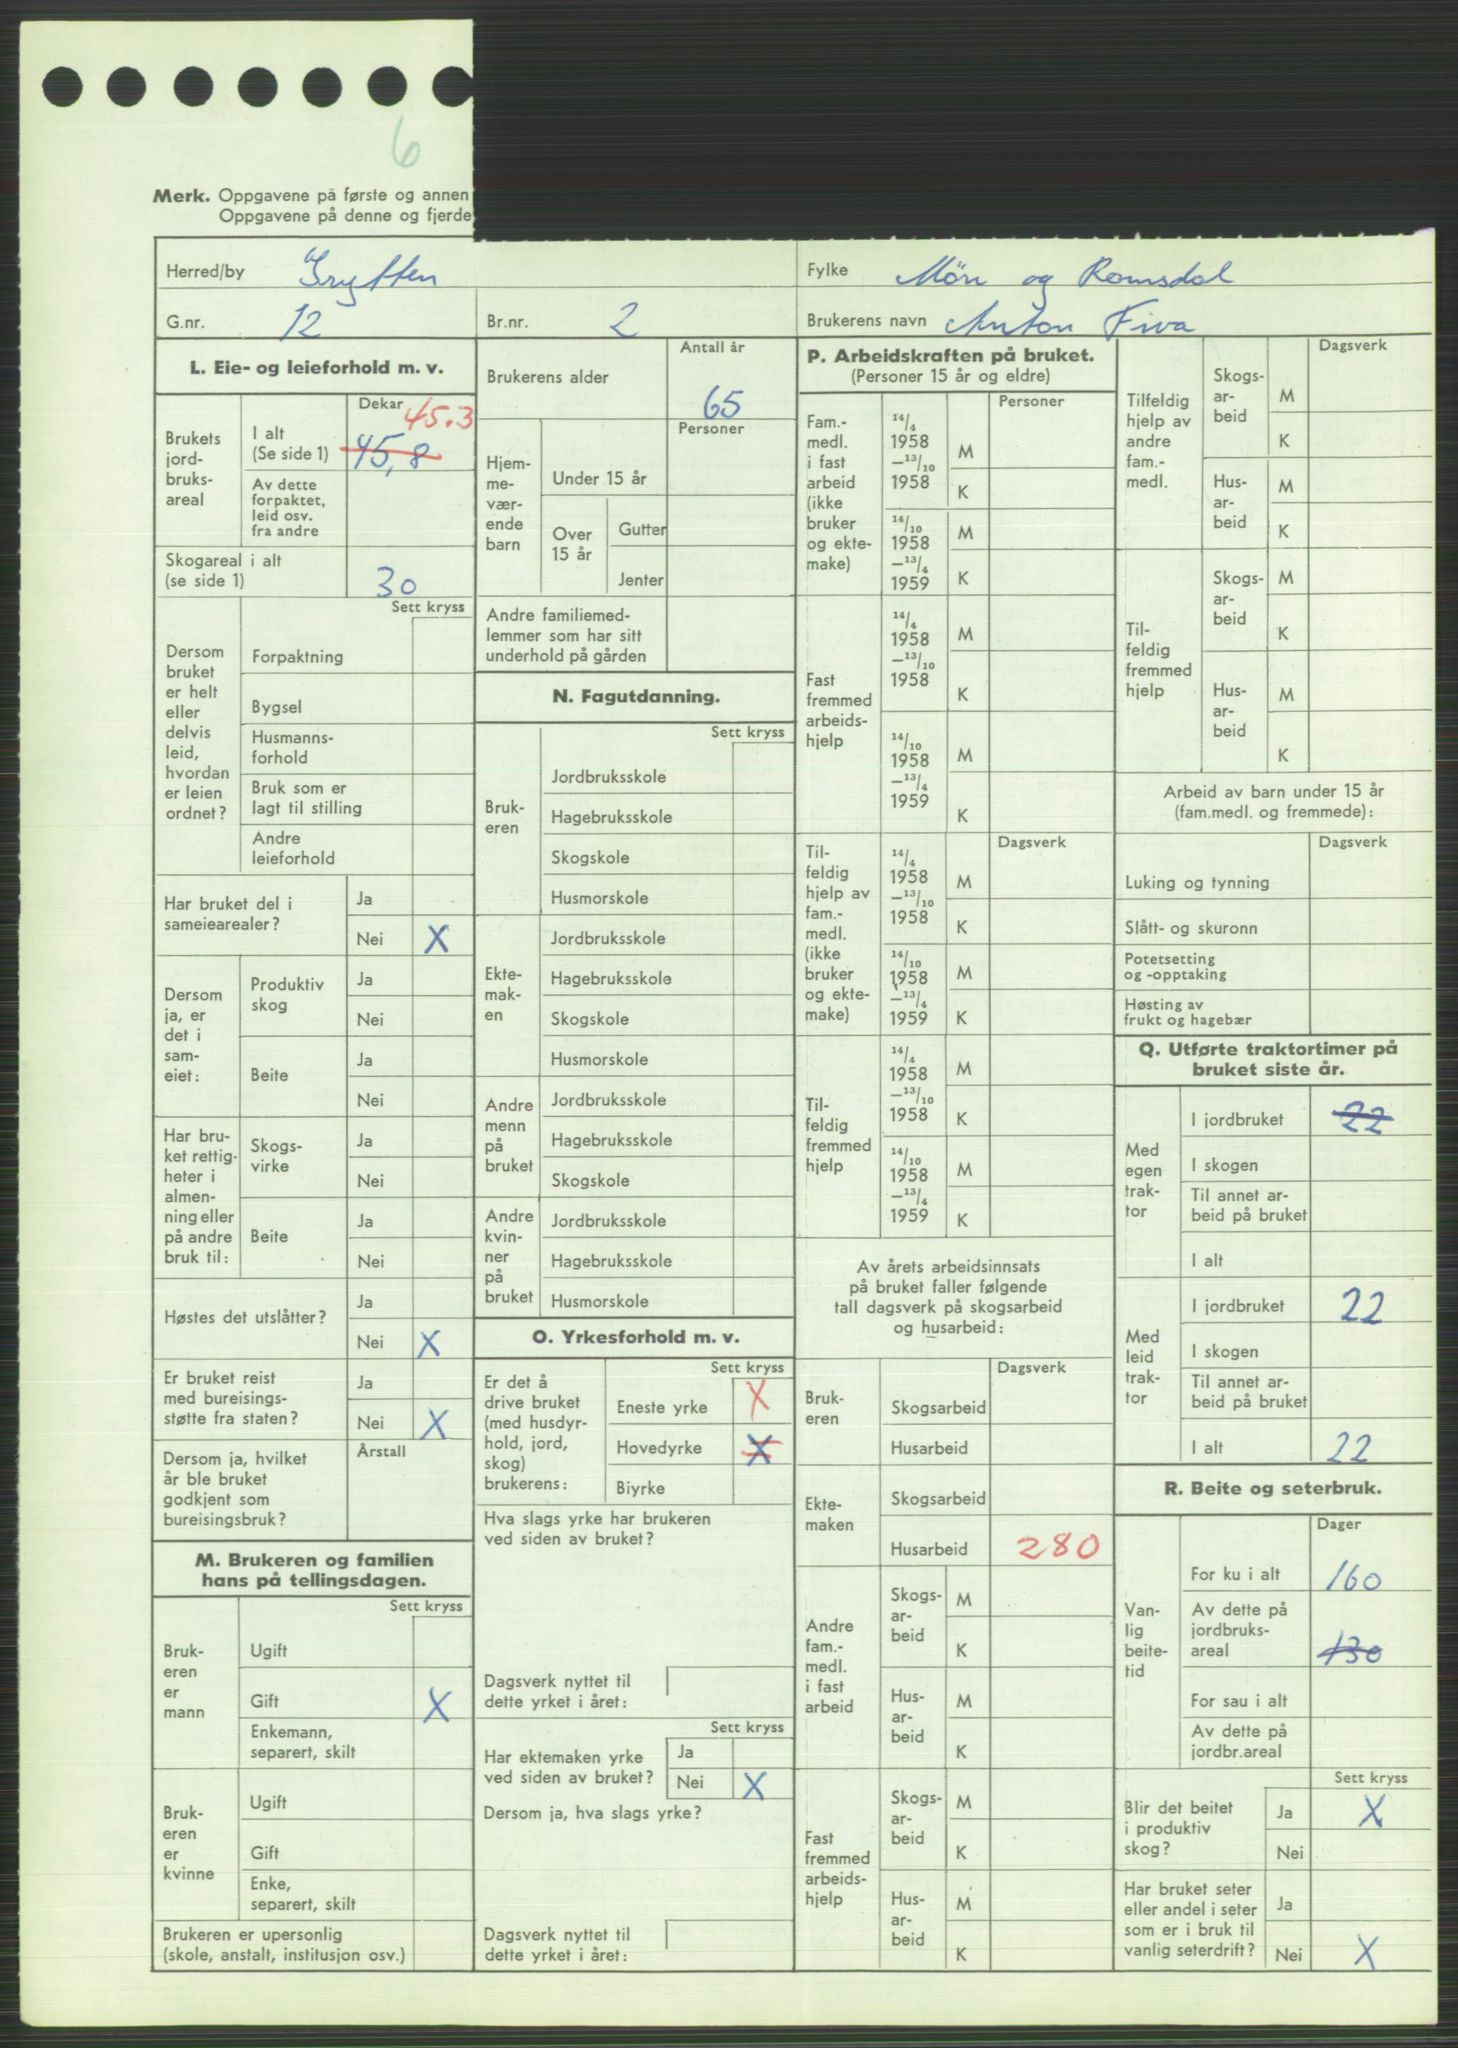 6
Merk. Oppgavene på første og annen
Oppgavene på denne og fjerde
Herred/by Grytten
Fylke Møre og Romsdal
G.nr. 12
Br.nr. 2
Brukerens navn Anton Fiva
L. Eie- og leieforhold m. v.
Dekar
Brukets jord-bruks-areal
I alt (Se side 1) 45,8 45.3
Av dette forpaktet, leid osv. fra andre
Skogareal i alt (se side 1) 30
Sett kryss
Dersom bruket er helt eller delvis leid, hvordan er leien ordnet?
Forpaktning
Bygsel
Husmanns-forhold
Bruk som er lagt til stilling
Andre leieforhold
Har bruket del i sameiearealer?
Ja
Nei X
Dersom ja, er det i sam-eiet:
Produktiv skog
Ja
Nei
Beite
Ja
Nei
Har bru-ket rettig-heter i almen-ning eller på andre bruk til:
Skogs-virke
Ja
Nei
Beite
Ja
Nei
Høstes det utslåtter?
Ja
Nei X
Er bruket reist med bureisings-støtte fra staten?
Ja
Nei X
Dersom ja, hvilket år ble bruket godkjent som bureisingsbruk?
Årstall
M. Brukeren og familien hans på tellingsdagen.
Sett kryss
Bruk-eren er mann
Ugift
Gift X
Enkemann, separert, skilt
Bruk-eren er kvinne
Ugift
Gift
Enke, separert, skilt
Brukeren er upersonlig (skole, anstalt, institusjon osv.)
Antall år
Brukerens alder 65
Personer
Hjem-me-vær-ende barn
Under 15 år
Over 15 år
Gutter
Jenter
Andre familiemed-lemmer som har sitt underhold på gården
N. Fagutdanning.
Sett kryss
Bruk-eren
Jordbruksskole
Hagebruksskole
Skogskole
Husmorskole
Ekte-mak-en
Jordbruksskole
Hagebruksskole
Skogskole
Husmorskole
Andre menn på bruket
Jordbruksskole
Hagebruksskole
Skogskole
Andre kvin-ner på bruket
Jordbruksskole
Hagebruksskole
Husmorskole
O. Yrkesforhold m. v.
Sett kryss
Er det å drive bruket (med husdyr-hold, jord, skog) brukerens:
Eneste yrke X
Hovedyrke X
Biyrke
Hva slags yrke har brukeren ved siden av bruket?
Dagsverk nyttet til dette yrket i året:
Sett kryss
Har ektemaken yrke ved siden av bruket?
Ja
Nei X
Dersom ja, hva slags yrke?
Dagsverk nyttet til dette yrket i året:
P. Arbeidskraften på bruket.
(Personer 15 år og eldre)
Personer
Fam.-medl. i fast arbeid (ikke bruker og ekte-make)
14/4 1958 –13/10 1958
M
K
14/10 1958 –13/4 1959
M
K
Fast fremmed arbeids-hjelp
14/4 1958 –13/10 1958
M
K
14/10 1958 –13/4 1959
M
K
Dagsverk
Til-feldig hjelp av fam.-medl. (ikke bruker og ekte-make)
14/4 1958 –13/10 1958
M
K
14/10 1958 –13/4 1959
M
K
Til-feldig fremmed hjelp
14/4 1958 –13/10 1958
M
K
14/10 1958 –13/4 1959
M
K
Av årets arbeidsinnsats på bruket faller følgende tall dagsverk på skogsarbeid og husarbeid:
Dagsverk
Bruk-eren
Skogsarbeid
Husarbeid
Ekte-maken
Skogsarbeid
Husarbeid 280
Andre fam.-medl. i fast arbeid
Skogs-ar-beid
M
K
Hus-ar-beid
M
K
Fast fremmed arbeids-hjelp
Skogs-ar-beid
M
K
Hus-ar-beid
M
K
Dagsverk
Tilfeldig hjelp av andre fam.-medl.
Skogs-ar-beid
M
K
Hus-ar-beid
M
K
Til-feldig fremmed hjelp
Skogs-ar-beid
M
K
Hus-ar-beid
M
K
Arbeid av barn under 15 år (fam.medl. og fremmede):
Dagsverk
Luking og tynning
Slått- og skuronn
Potetsetting og -opptaking
Høsting av frukt og hagebær
Q. Utførte traktortimer på bruket siste år.
Med egen trak-tor
I jordbruket 22
I skogen
Til annet ar-beid på bruket
I alt
Med leid trak-tor
I jordbruket 22
I skogen
Til annet ar-beid på bruket
I alt 22
R. Beite og seterbruk.
Dager
Van-lig beite-tid
For ku i alt 160
Av dette på jordbruks-areal 130
For sau i alt
Av dette på jordbr.areal
Sett kryss
Blir det beitet i produktiv skog?
Ja X
Nei
Har bruket seter eller andel i seter som er i bruk til vanlig seterdrift?
Ja
Nei X